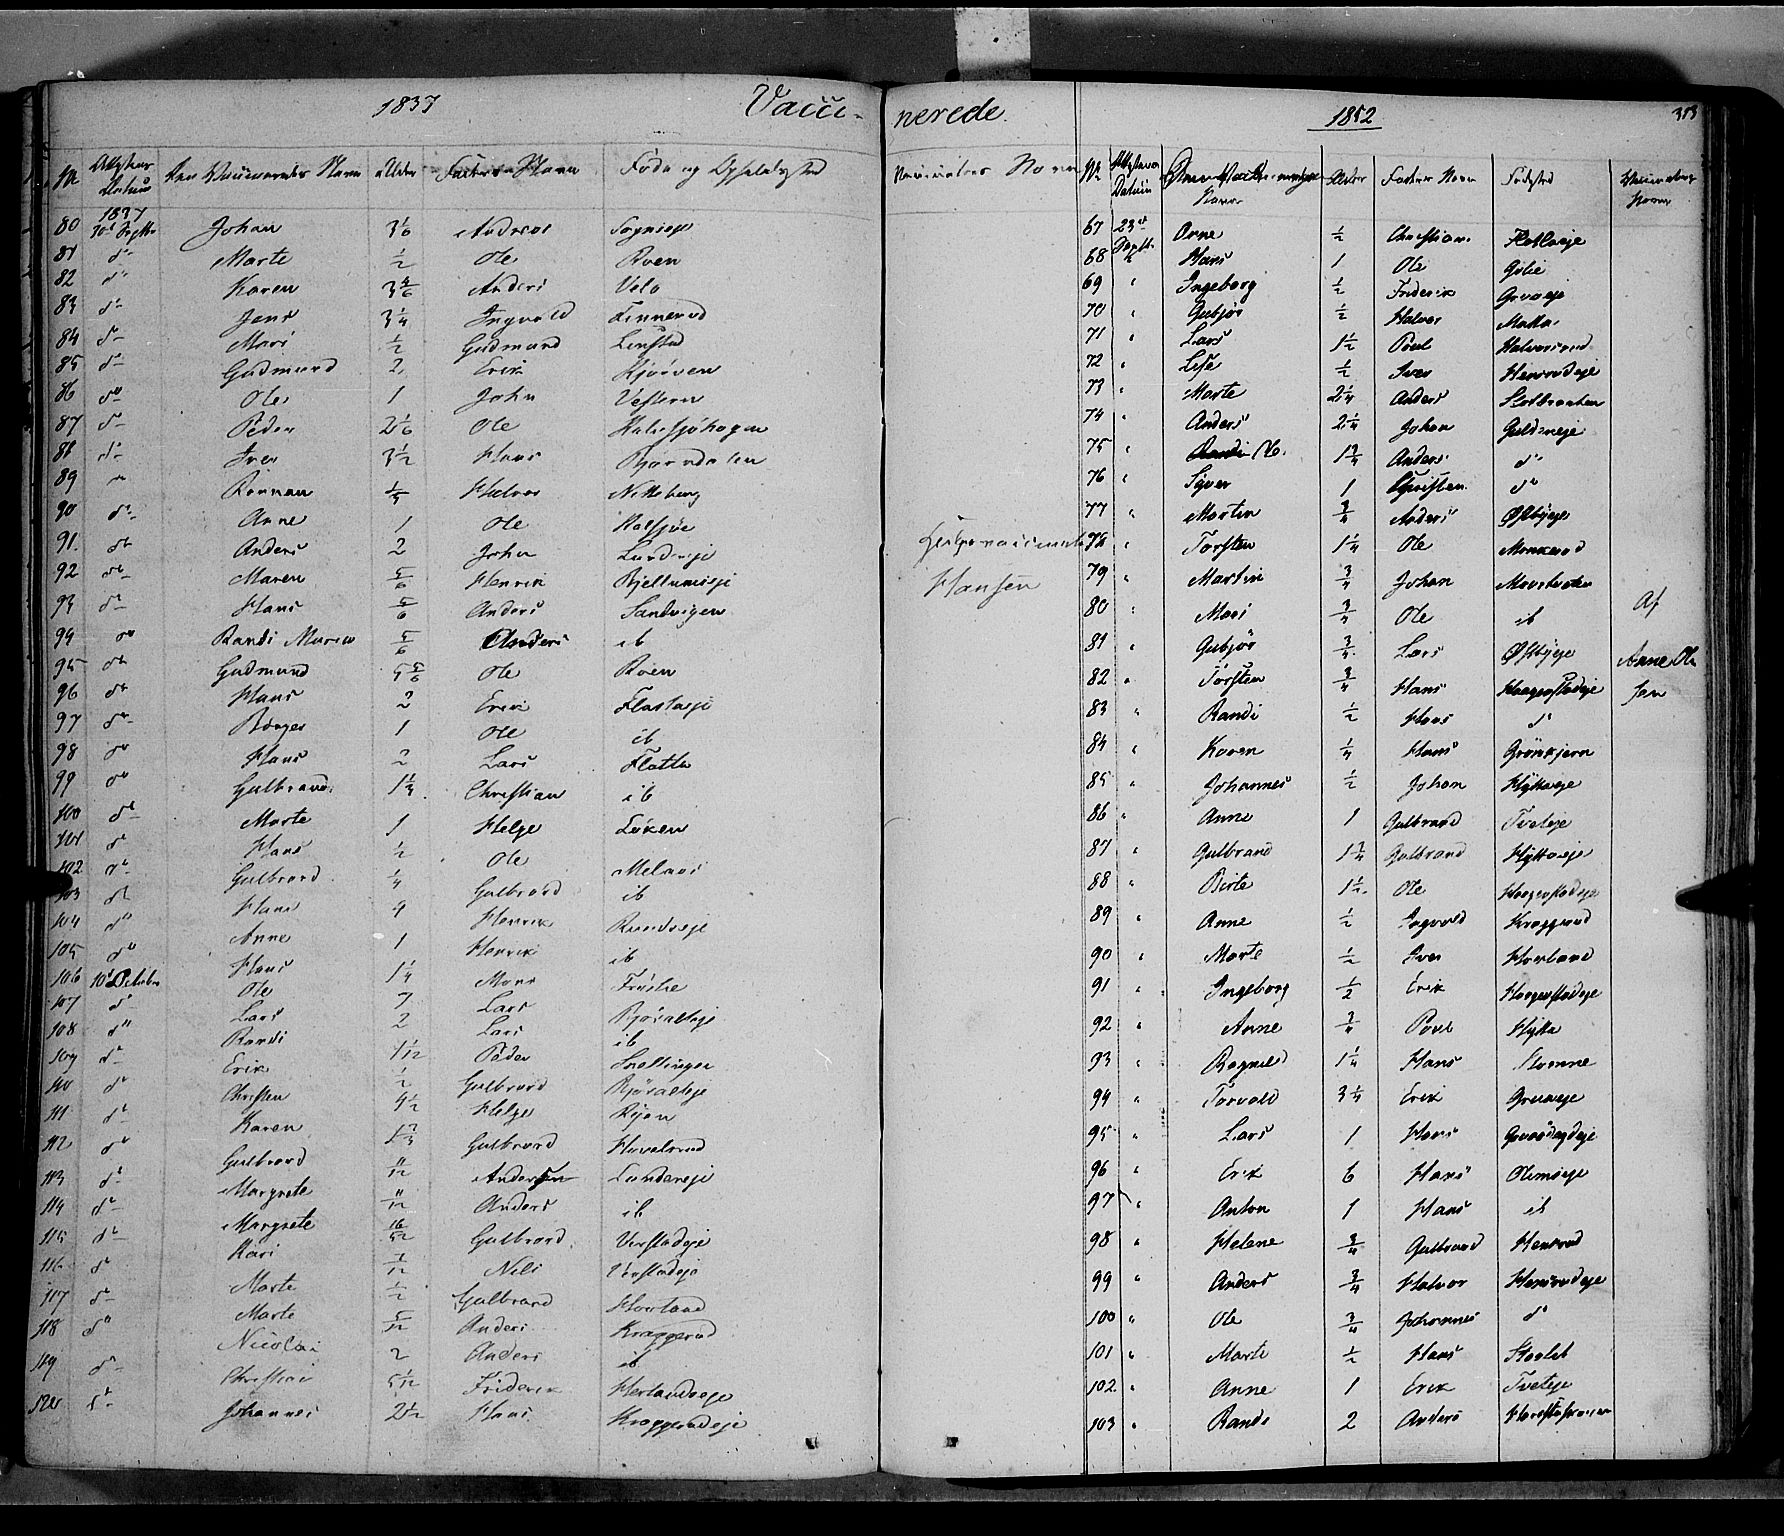 1837 Vacci-
No Attestens Datum Den Vaccineredes Navn Alder Faders Navn Føde og Opholdssted
1837
80 30te Septbr Johan 3 1/6 Andreas
81 do Marte 1/2 Ole Roen
82 do Karen 3 4/6 Anders Velo
83 do Jens 3 1/4 Ingvald Finnerud
84 do Mari 1/2 Gudmund
85 do Gudmund 2 Erik Kjørven
86 do Ole 1 John Vestern
87 do Peder 2 1/6 Ole
88 do Iver 3 1/2 Hans Bjørndalen
89 Halvor Nitteberg
90 do Anne 1 Ole
91. do Anders 2 John Lundseje
92 do Maren 5/6 Henrik
93 do Hans 5/6 Anders Sandvigen
94 do Randi Maren 5/6 Anders ib
95 do Gudmund 5 5/6 Ole Roen
96 do Hans 2 Erik Flattaeje
97 do Børger 1 Ole ib
98 do Hans 2 Lars Flatta
99 do Gulbrand 1 1/3 Christian ib
100 do Marte 1 Helge Løken
101 do Hans 1/2 Ole
102 do Gulbrand 1/4 Gulbrand ib
103 do Hans 9 Henrik
104 do Anne 1 Henrik ib
105 do Hans 1 1/4 Mons
106 10de Octobr Ole 7 Lars Bjøralteje
107 do Lars 2 Lars ib
108 do Randi 1 1/12 Peder Snellingen
109 do Erik 1/2 Gulbrand Bjøralteje
110 do Christen 4 1/2 Helge
111 do Karen 1 2/3 Gulbrand
112 do Gulbrand 11/12 Andersen Lundereje
113 do Margrete 11/12 Anders ib
114 do Margrete Gulbrand
115 do Kari Nils
116 do Marte 1/2 Gulbrand Horland
117 do Marte 5/12 Anders Kraggerud
118 do Nicolai 2 Anders ib
119 do Christian 5 1/12 Friderik Horlandseje
120 do Johannes 2 1/2 Hans Kraggerudeje
nerede 1852 313
Vaccinators Navn No Attestens Datum Navn Alder Faders Navn Fødested Vaccinators Navn
67 23de Septbr Arne 1/2 Christian Flattaeje
68 " Hans 1 Ole Gilie
69 " Ingeborg 1/2 Friderik Gruaeje
70 " Gubjør 1/2 Halvor Matta
71 " Lars 1 1/2 Poul Halvorsrud
72 " Lise 1/2 Iver Henrudeje
73 " Marte 2 1/4 Anders Stolbraaten
74 " Anders 2 1/4 Johan
75 " Randi M. 1 3/4 Anders do
76 " Syver 1 Christen do
77 " Martin 3/4 Anders Østbyeje
Hjelpevaccinateur 78 " Torsten 1 1/4 Ole
Hansen 79 " Martin 3/4 Johan
80 " Mari 3/4 Ole ib Af
81 " Gubjør 3/4 Lars Østbyeje Anne Ol
82 " Torsten 3/4 Hans Haagenstadeje sen
83 " Randi 1/2 Hans do
84 " Karen 1/4 Hans Grønkjern
85 " Johannes 1/2 Johan Hyttaeje
86 " Anne 1 Gulbrand Tveteje
87 " Gulbrand 1 3/4 Gulbrand Hyttaeje
88 " Birte 1 1/2 Ole Haagenstadeje
89 " Anne 1/2 Ingvald Kraggerud
90 " Marte 1/2 Iver Horland
91 " Ingeborg 1/2 Erik Haagenstadeje
92 " Anne 3/4 Povl Hytta
93 " Ragnild 1 1/4 Hans
94 " Torvald 3 1/4 Erik Gruaeje
95 " Lars 1 Hans
96 " Erik 6 Hans Olimseje
97 " Anton 1 Hans ib
98 " Helene 3/4 Gulbrand Henrud
99 " Anders 3/4 Halvor Henrudeje
100 " Ole 3/4 Johannes do
101 " Marte 1/2 Hans
102 " Anne 1 Erik Tveteje
103 " Randi 2 Anders